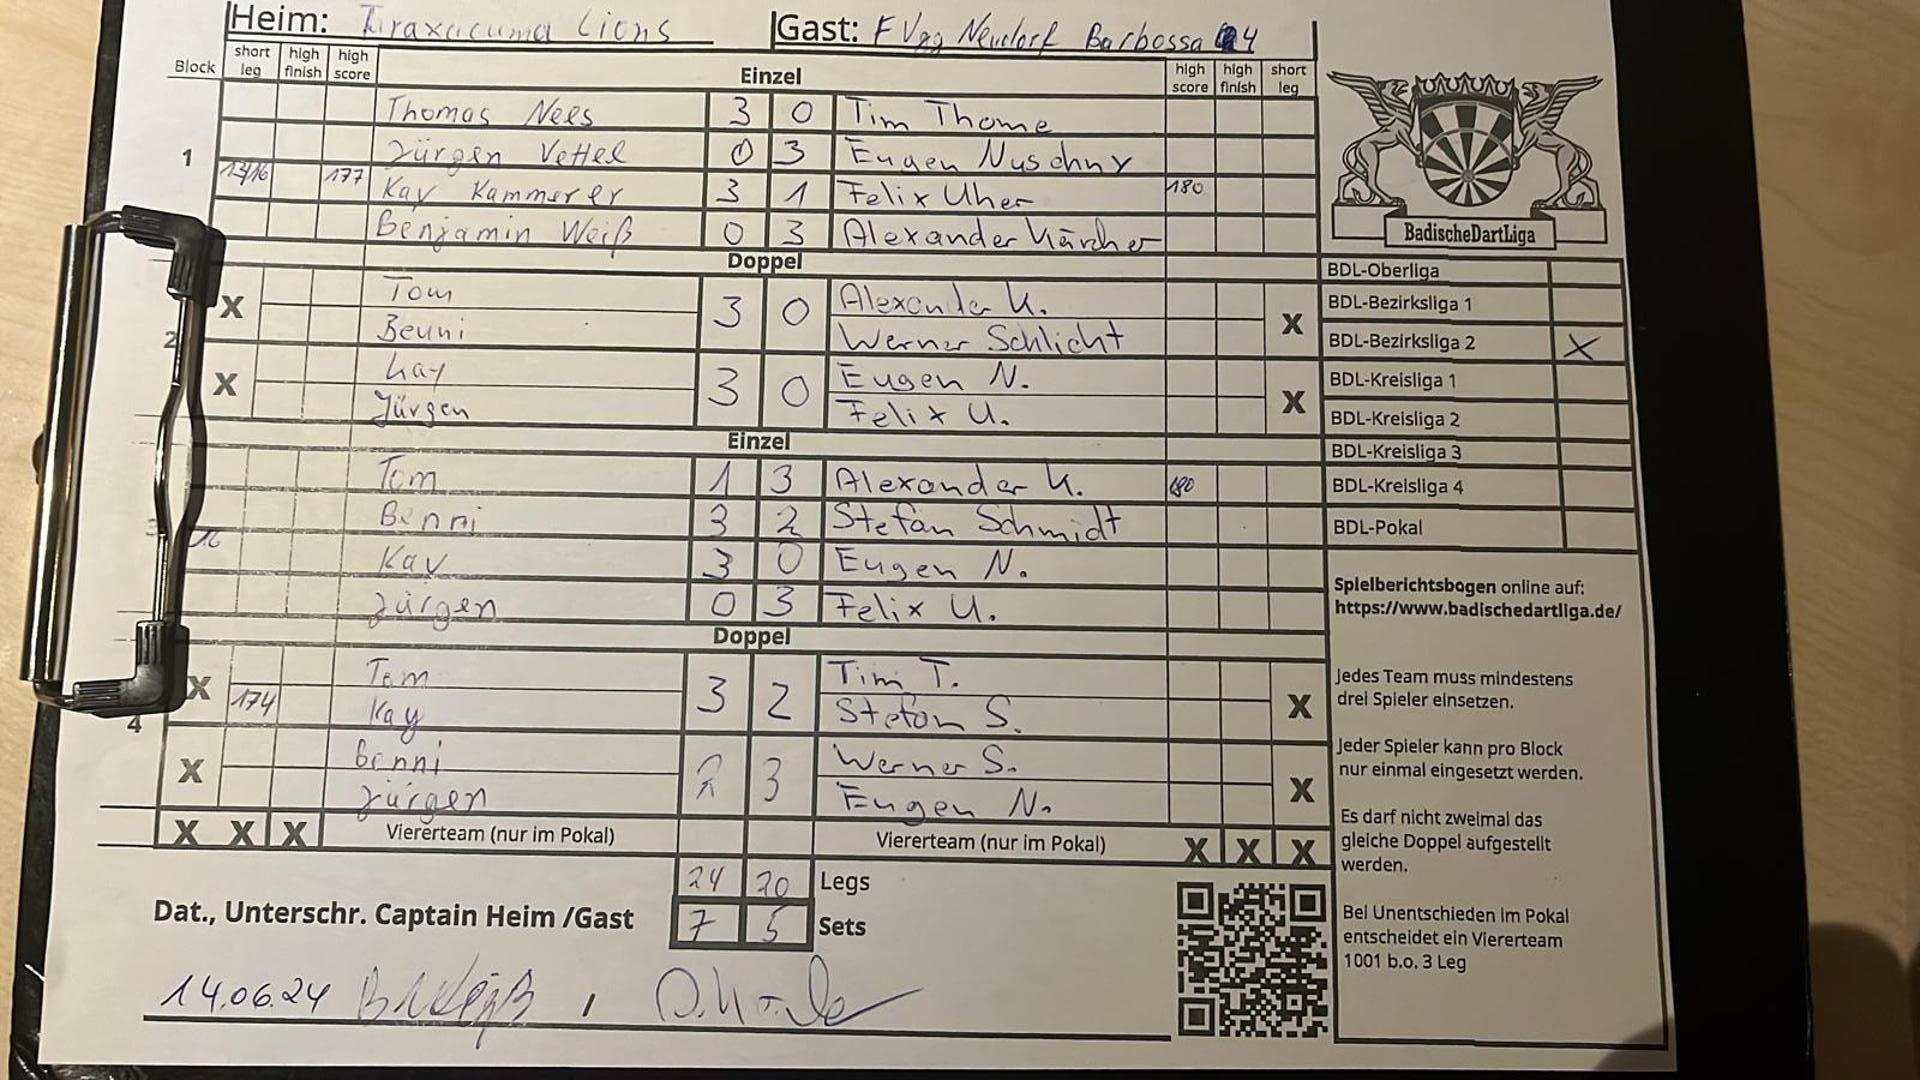 Heim: Taraxacuma Lions Gast: FVgg Neudorf Barbossa 4
Block short leg high finish high score Einzel high score high finish short leg
Thomas Nees 3 0 Tim Thome
1 Jürgen Vettel 0 3 Eugen Nuschny
13/16 177 Kay Kammerer 3 1 Felix Uher 180
Benjamin Weiß 0 3 Alexander Kärcher
BadischeDartLiga
Doppel
X Tom 3 0 Alexander K. X
2 Benni Werner Schlicht
X Kay 3 0 Eugen N. X
Jürgen Felix U.
Einzel
Tom 1 3 Alexander K. 180
Benni 3 2 Stefan Schmidt
3 16 Kay 3 0 Eugen N.
Jürgen 0 3 Felix U.
Doppel
X Tom 3 2 Tim T. X
174 Kay Stefan S.
4
X Benni 2 3 Werner S. X
Jürgen Eugen N.
X X X Viererteam (nur im Pokal) Viererteam (nur im Pokal) X X X
24 20 Legs
Dat., Unterschr. Captain Heim /Gast 7 5 Sets
14.06.24
BDL-Oberliga
BDL-Bezirksliga 1
BDL-Bezirksliga 2 X
BDL-Kreisliga 1
BDL-Kreisliga 2
BDL-Kreisliga 3
BDL-Kreisliga 4
BDL-Pokal
Spielberichtsbogen online auf:
https://www.badischedartliga.de/
Jedes Team muss mindestens
drei Spieler einsetzen.
Jeder Spieler kann pro Block
nur einmal eingesetzt werden.
Es darf nicht zweimal das
gleiche Doppel aufgestellt
werden.
Bei Unentschieden im Pokal
entscheidet ein Viererteam
1001 b.o. 3 Leg